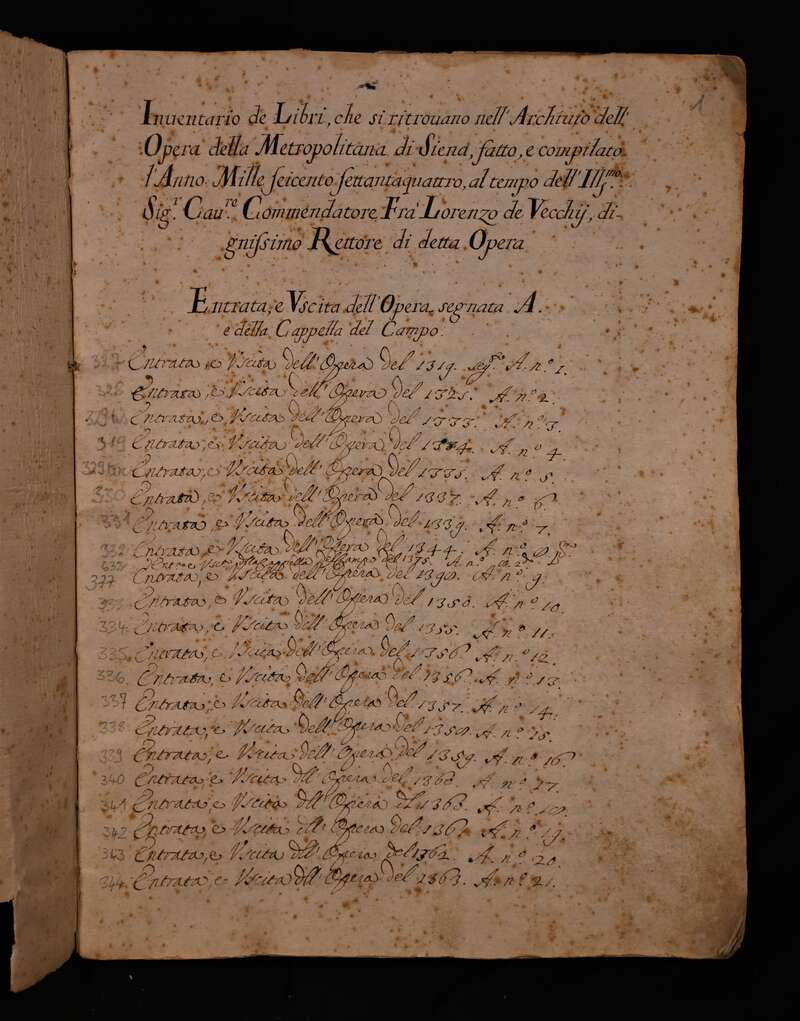 1
Inuentario de Libri, che si ritrouano nell'Archiuio dell'
Opera della Metropolitana di Siena, fatto, e compilato
l'Anno Mille seicento settantaquattro, al tempo dell'Ill.mo
Sig.r Cau.re Commendatore Fra Lorenzo de Vecchij, di-
gnissimo Rettore di detta Opera
Entrata, e Vscita dell'Opera segnata A.
e della Cappella del Campo.
Entrata, e Vscita dell'Opera del 1319. A. n.º 1.
328 Entrata, e Vscita dell'Opera del 1325. A. n.º 2.
Entrata, e Vscita dell'Opera del 1333. A. n.º 3.
Entrata, e Vscita dell'Opera del A. n.º 4.
Entrata, e Vscita dell'Opera del 1335. A. n.º 5.
330 Entrata, e Vscita dell'Opera del 1337. A. n.º 6.
331 Entrata, e Vscita dell'Opera del 1339. A. n.º 7.
332 Entrata, e Vscita dell'Opera del 1344. A. n.º 8.
377 Entrata, e Vscita dell'Opera del A. n.º 9.
Entrata, e Vscita dell'Opera del A. n.º 10.
334. Entrata, e Vscita dell'Opera del 1355. A. n.º 11.
335. Entrata, e Vscita dell'Opera del 1356. A. n.º 12.
336. Entrata, e Vscita dell'Opera del 1356. A. n.º 13.
337 Entrata, e Vscita dell'Opera del 1357. A. n.º 14.
338 Entrata, e Vscita dell'Opera del A. n.º 15.
339 Entrata, e Vscita dell'Opera del 1359. A. n.º 16.
340 Entrata, e Vscita dell'Opera del A. n.º 17.
341 Entrata, e Vscita dell'Opera del A. n.º 18.
342 Entrata, e Vscita dell'Opera del A. n.º 19.
343 Entrata, e Vscita dell'Opera del 1362. A. n.º 20.
344. Entrata, e Vscita dell'Opera del 1363. A. n.º 21.